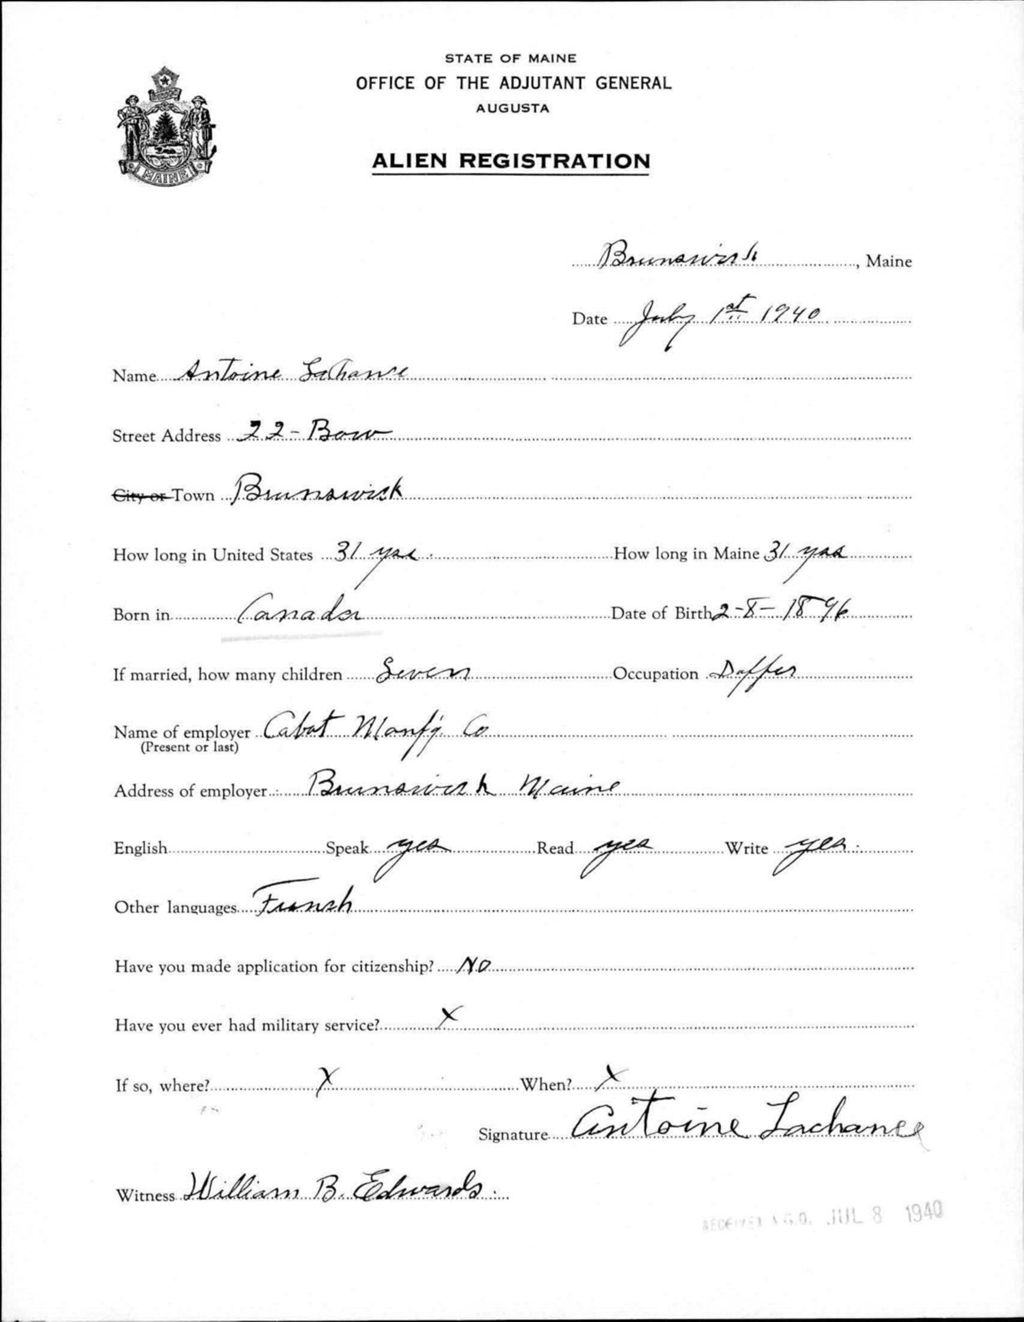 STATE OF MAINE
OFFICE OF THE ADJUTANT GENERAL
AUGUSTA
ALIEN REGISTRATION
MAINE
Brunswick, Maine
Date July 1st 1940
Name Antoine LaChance
Street Address 22-Bow
City or Town Brunswick
How long in United States 31 yrs. How long in Maine 31 yrs
Born in Canada Date of Birth 2-8-1896
If married, how many children Seven Occupation Doffer
Name of employer Cabot Manf'g Co
(Present or last)
Address of employer Brunswick Maine
English Speak yes Read yes Write yes
Other languages French
Have you made application for citizenship? No
Have you ever had military service? X
If so, where? X When? X
Signature Antoine Lachance
Witness William B. Edwards
RECEIVED A.G.O. JUL 8 1940